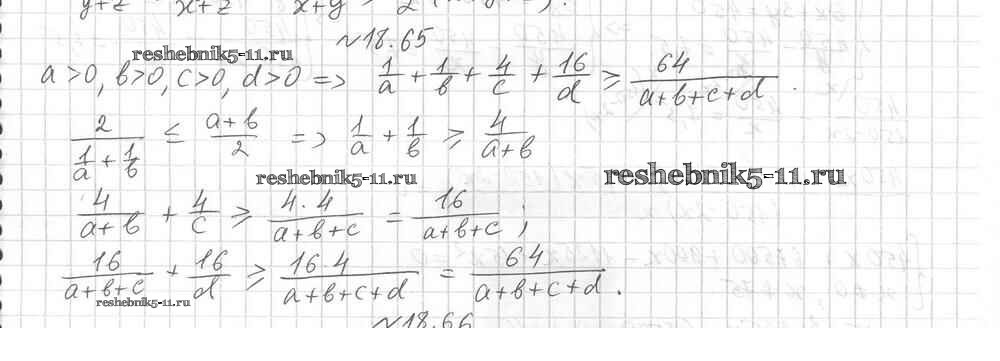 y+z x+z x+y 2
№18.65
reshebnik5-11.ru
a>0, b>0, c>0, d>0 => 1/a + 1/b + 4/c + 16/d ≥ 64/(a+b+c+d).
2/(1/a + 1/b) ≤ (a+b)/2 => 1/a + 1/b ≥ 4/(a+b)
reshebnik5-11.ru reshebnik5-11.ru
4/(a+b) + 4/c ≥ 4·4/(a+b+c) = 16/(a+b+c);
16/(a+b+c) + 16/d ≥ 16·4/(a+b+c+d) = 64/(a+b+c+d).
reshebnik5-11.ru
№18.66